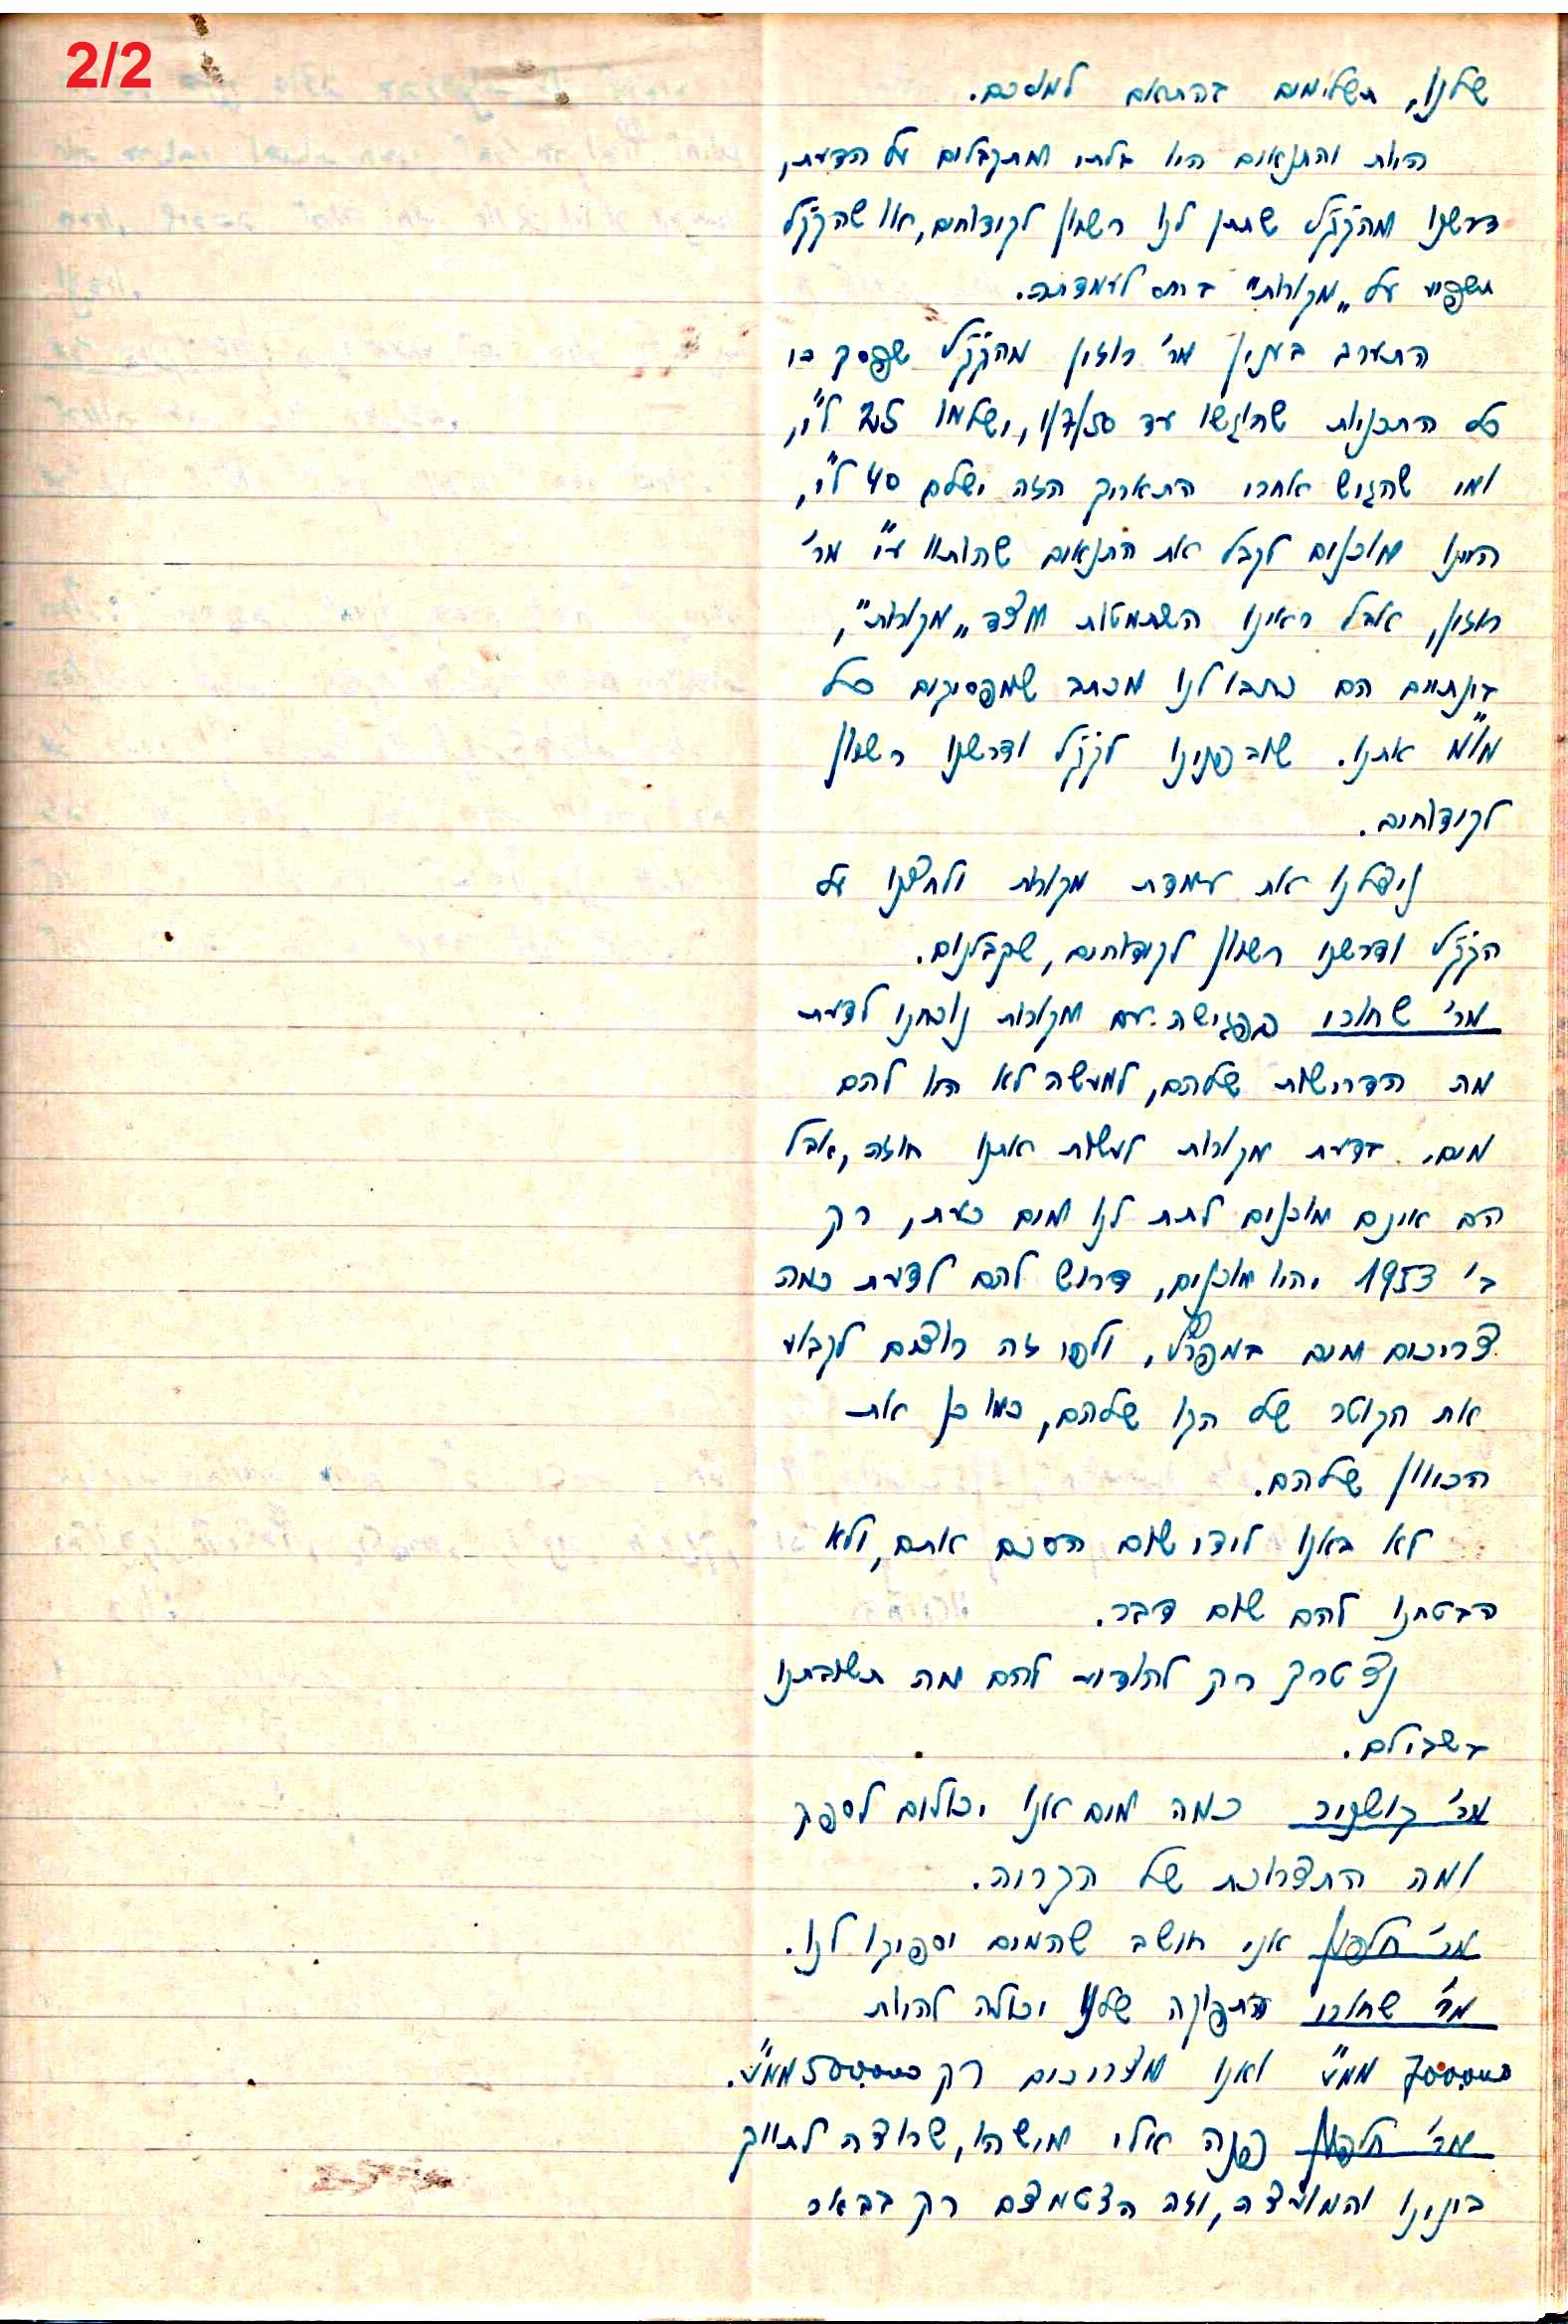 2/2
שלנו, תשלומים בהתאם למוסכם.
היות והתנאים היו בלתי מתקבלים על הדעת,
דרשנו מהקק"ל שתתן לנו רשיון לקידוחים, או שהקק"ל
תשפיע על "מקורות" ביחס לעמדתה.
התערב בענין מר' רוזין מהקק"ל שפסק כי
כל התכניות שהוגשו עד 1/7/50, ישלמו לי',
ומי שהגיש אחרי התאריך הזה ישלם 40 לי',
היינו מוכנים לקבל את התנאים שהותוו ע"י מר'
רוזין, אבל ראינו השתמטות מצד "מקורות",
בינתיים הם כתבו לנו מכתב שמפסיקים כל
מו"מ אתנו. שוב פנינו לקק"ל ודרשנו רשיון
לקידוחים.
ניצלנו את עמדת מקורות ולחצנו על
הקק"ל ודרשנו רשיון לקידוחים, שקבלנום.
מר' שחורי בפגישה עם מקורות נוכחנו לדעת
מה הדרישות שלהם, למעשה לא היו להם
מים. בדעת מקורות לעשות אתנו חוזה, אבל
הם אינם מוכנים לתת לנו מים כעת, רק
ב' 1953 יהיו מוכנים, דרוש להם לדעת כמה
צריכים מים במפר"ל, ולפי זה רוצים לקבוע
את הקוטר של הקו שלהם, כמו כן את
הכוון שלהם.
לא באנו לידי שום הסכם אתם, ולא
הבטחנו להם שום דבר.
נצטרך רק להודיע להם מה תשובתנו
בשבילם.
מר' קושניר כמה מים אנו יכולים לספק
ומה התצרוכת של הקריה.
מר' חלפון אני חושב שהמים יספיקו לנו.
מר' שחורי התפוקה שלנו יכולה להיות
700.000 ממ"ע ואנו מצריכים רק 500.000 ממ"ע.
מר' חלפון פנה אלי מישהו, שרוצה לתווך
בינינו והמועצה, וזה הצטמצם רק בבאר